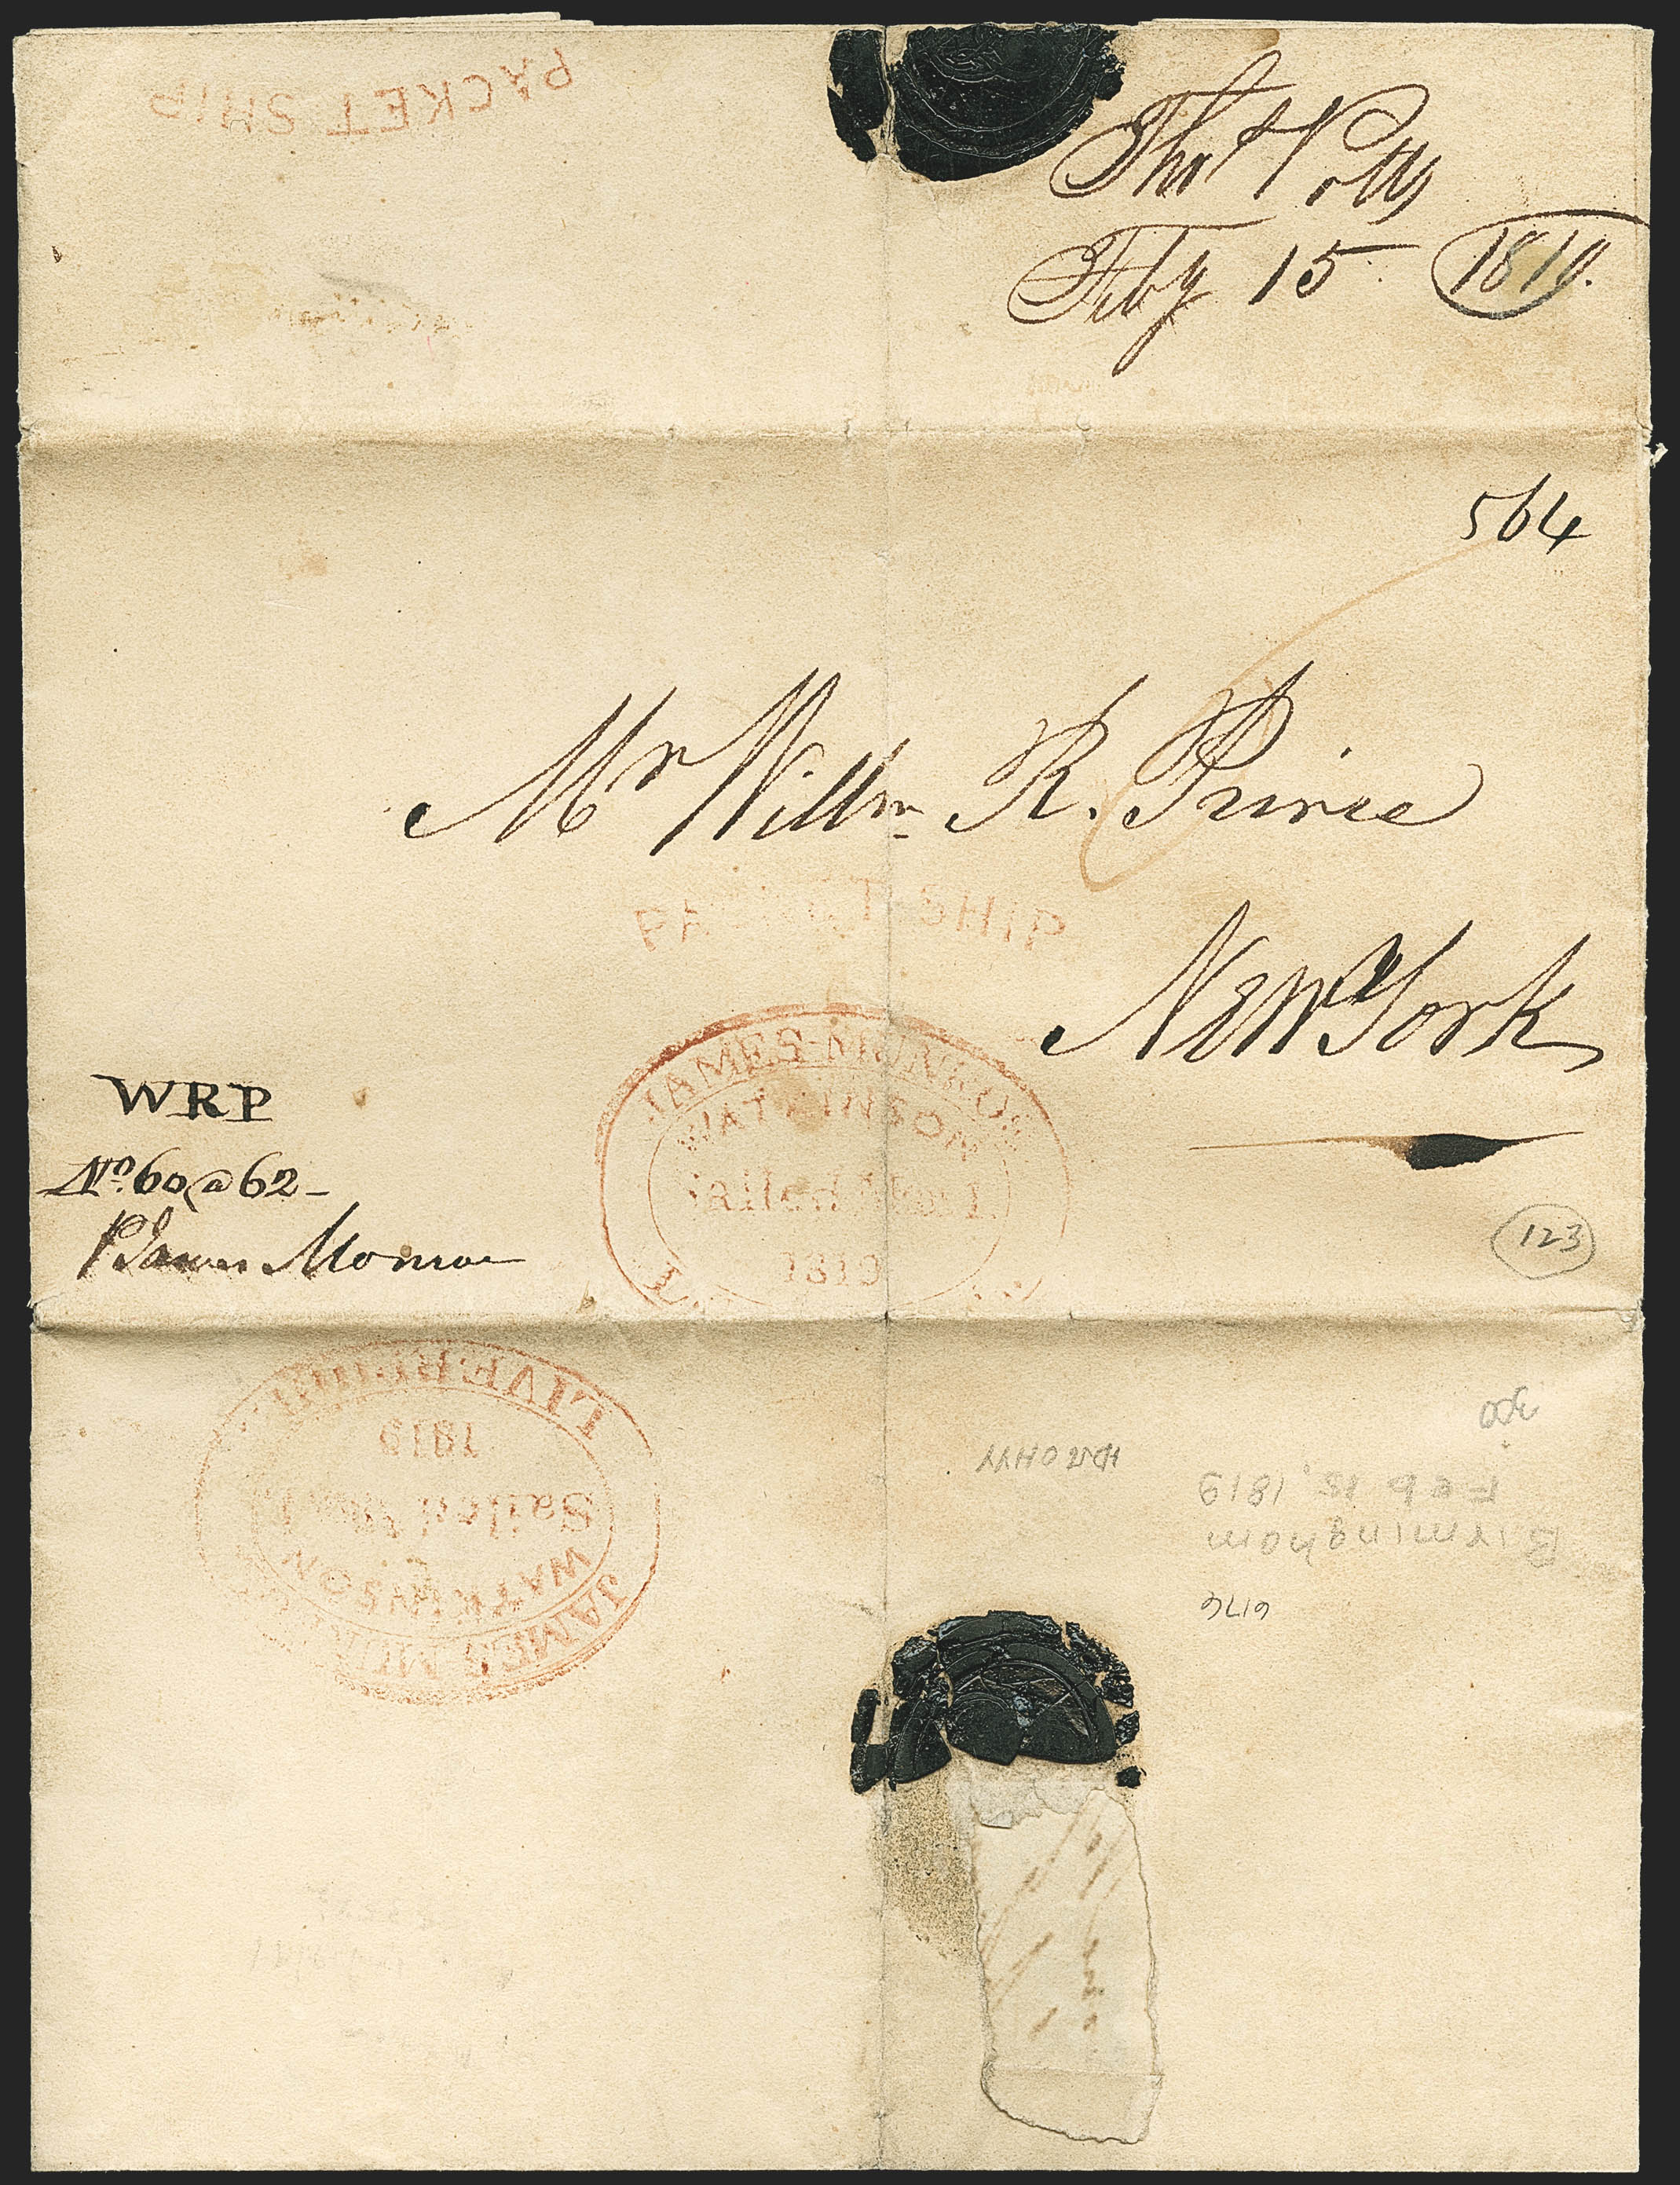 PACKET SHIP
Thos Potts
Feby 15 1819.
564
Mr Willm R. Prince
PACKET SHIP
New York
JAMES MONROE
WATKINSON
Sailed Mar 1
1819
WRP
No. 60 @ 62 -
P James Monroe
123
LIVERPOOL
1819
Sailed Mar 1
WATKINSON
JAMES MONROE
300
Feb 15, 1819
Birmingham
6176